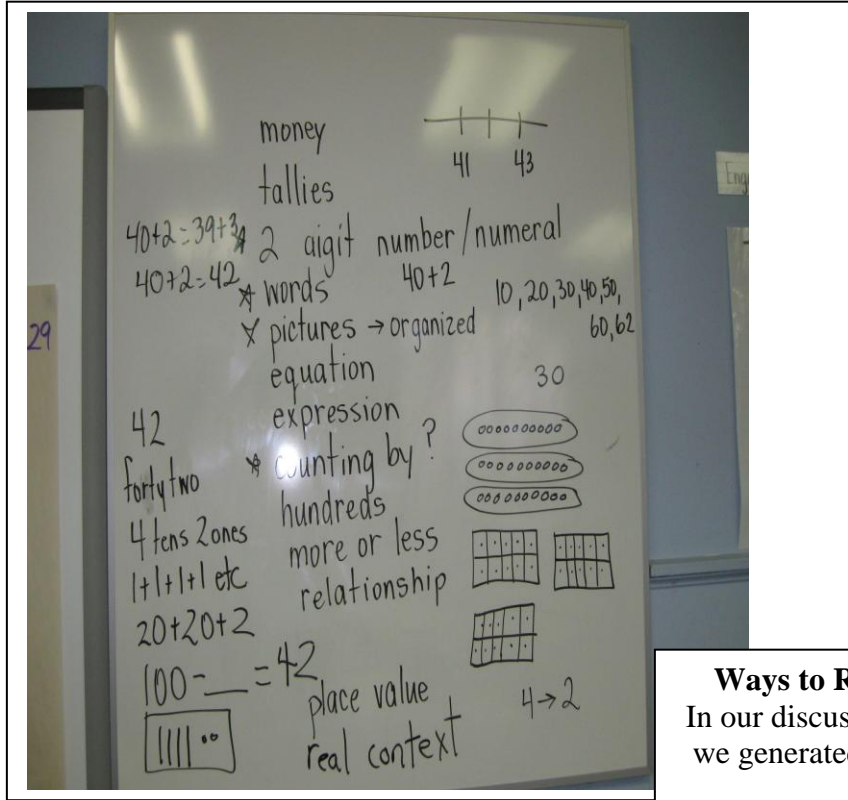 money
tallies
41 43
40+2=39+3
2 aigit number/numeral
40+2=42
words
40+2
10,20,30,40,50,
60,62
pictures → organized
equation
30
expression
counting by ?
hundreds
more or less
relationship
42
forty two
4 tens 2 ones
1+1+1+1 etc
20+20+2
100-__=42
place value
4→2
real context
29
Eng
Ways to R
In our discus
we generate